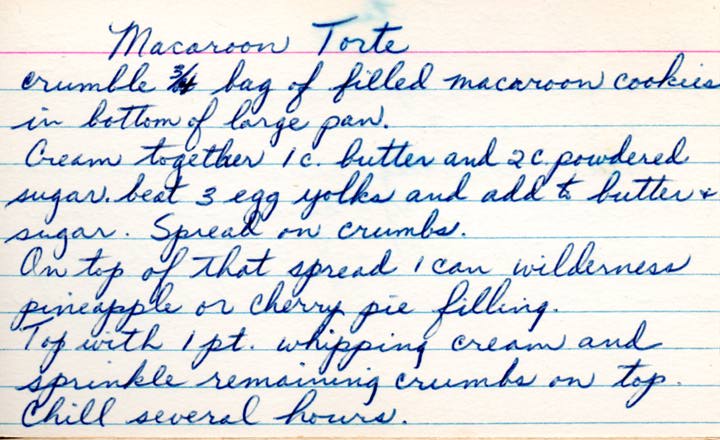 Macaroon Torte
crumble 3/4 bag of filled macaroon cookies
in bottom of large pan.
Cream together 1 c. butter and 2 c. powdered
sugar. beat 3 egg yolks and add to butter +
sugar. Spread on crumbs.
On top of that spread 1 can wilderness
pineapple or cherry pie filling.
Top with 1 pt. whipping cream and
sprinkle remaining crumbs on top.
Chill several hours.